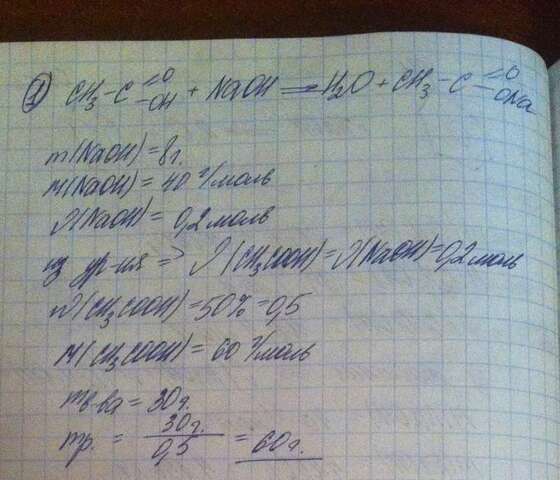 1) CH₃-C(=O)(-OH) + NaOH = H₂O + CH₃-C(=O)(-ONa)
m(NaOH) = 8г.
M(NaOH) = 40 г/моль
ν(NaOH) = 0,2 моль
из ур-ия => ν(CH₃COOH) = ν(NaOH) = 0,2 моль
ω(CH₃COOH) = 50% = 0,5
M(CH₃COOH) = 60 г/моль
mв-ва = 30г.
mр. = 30г. / 0,5 = 60г.